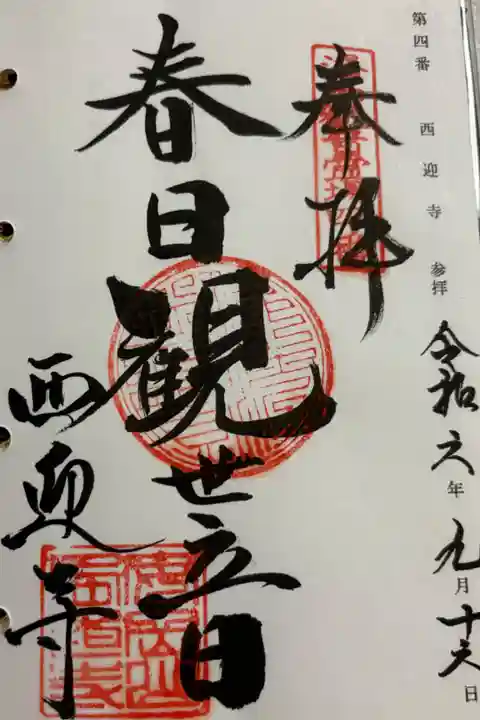 第四番 西迎寺 参拝 令和六年九月十六日
奉拝
春日観世音
西迎寺